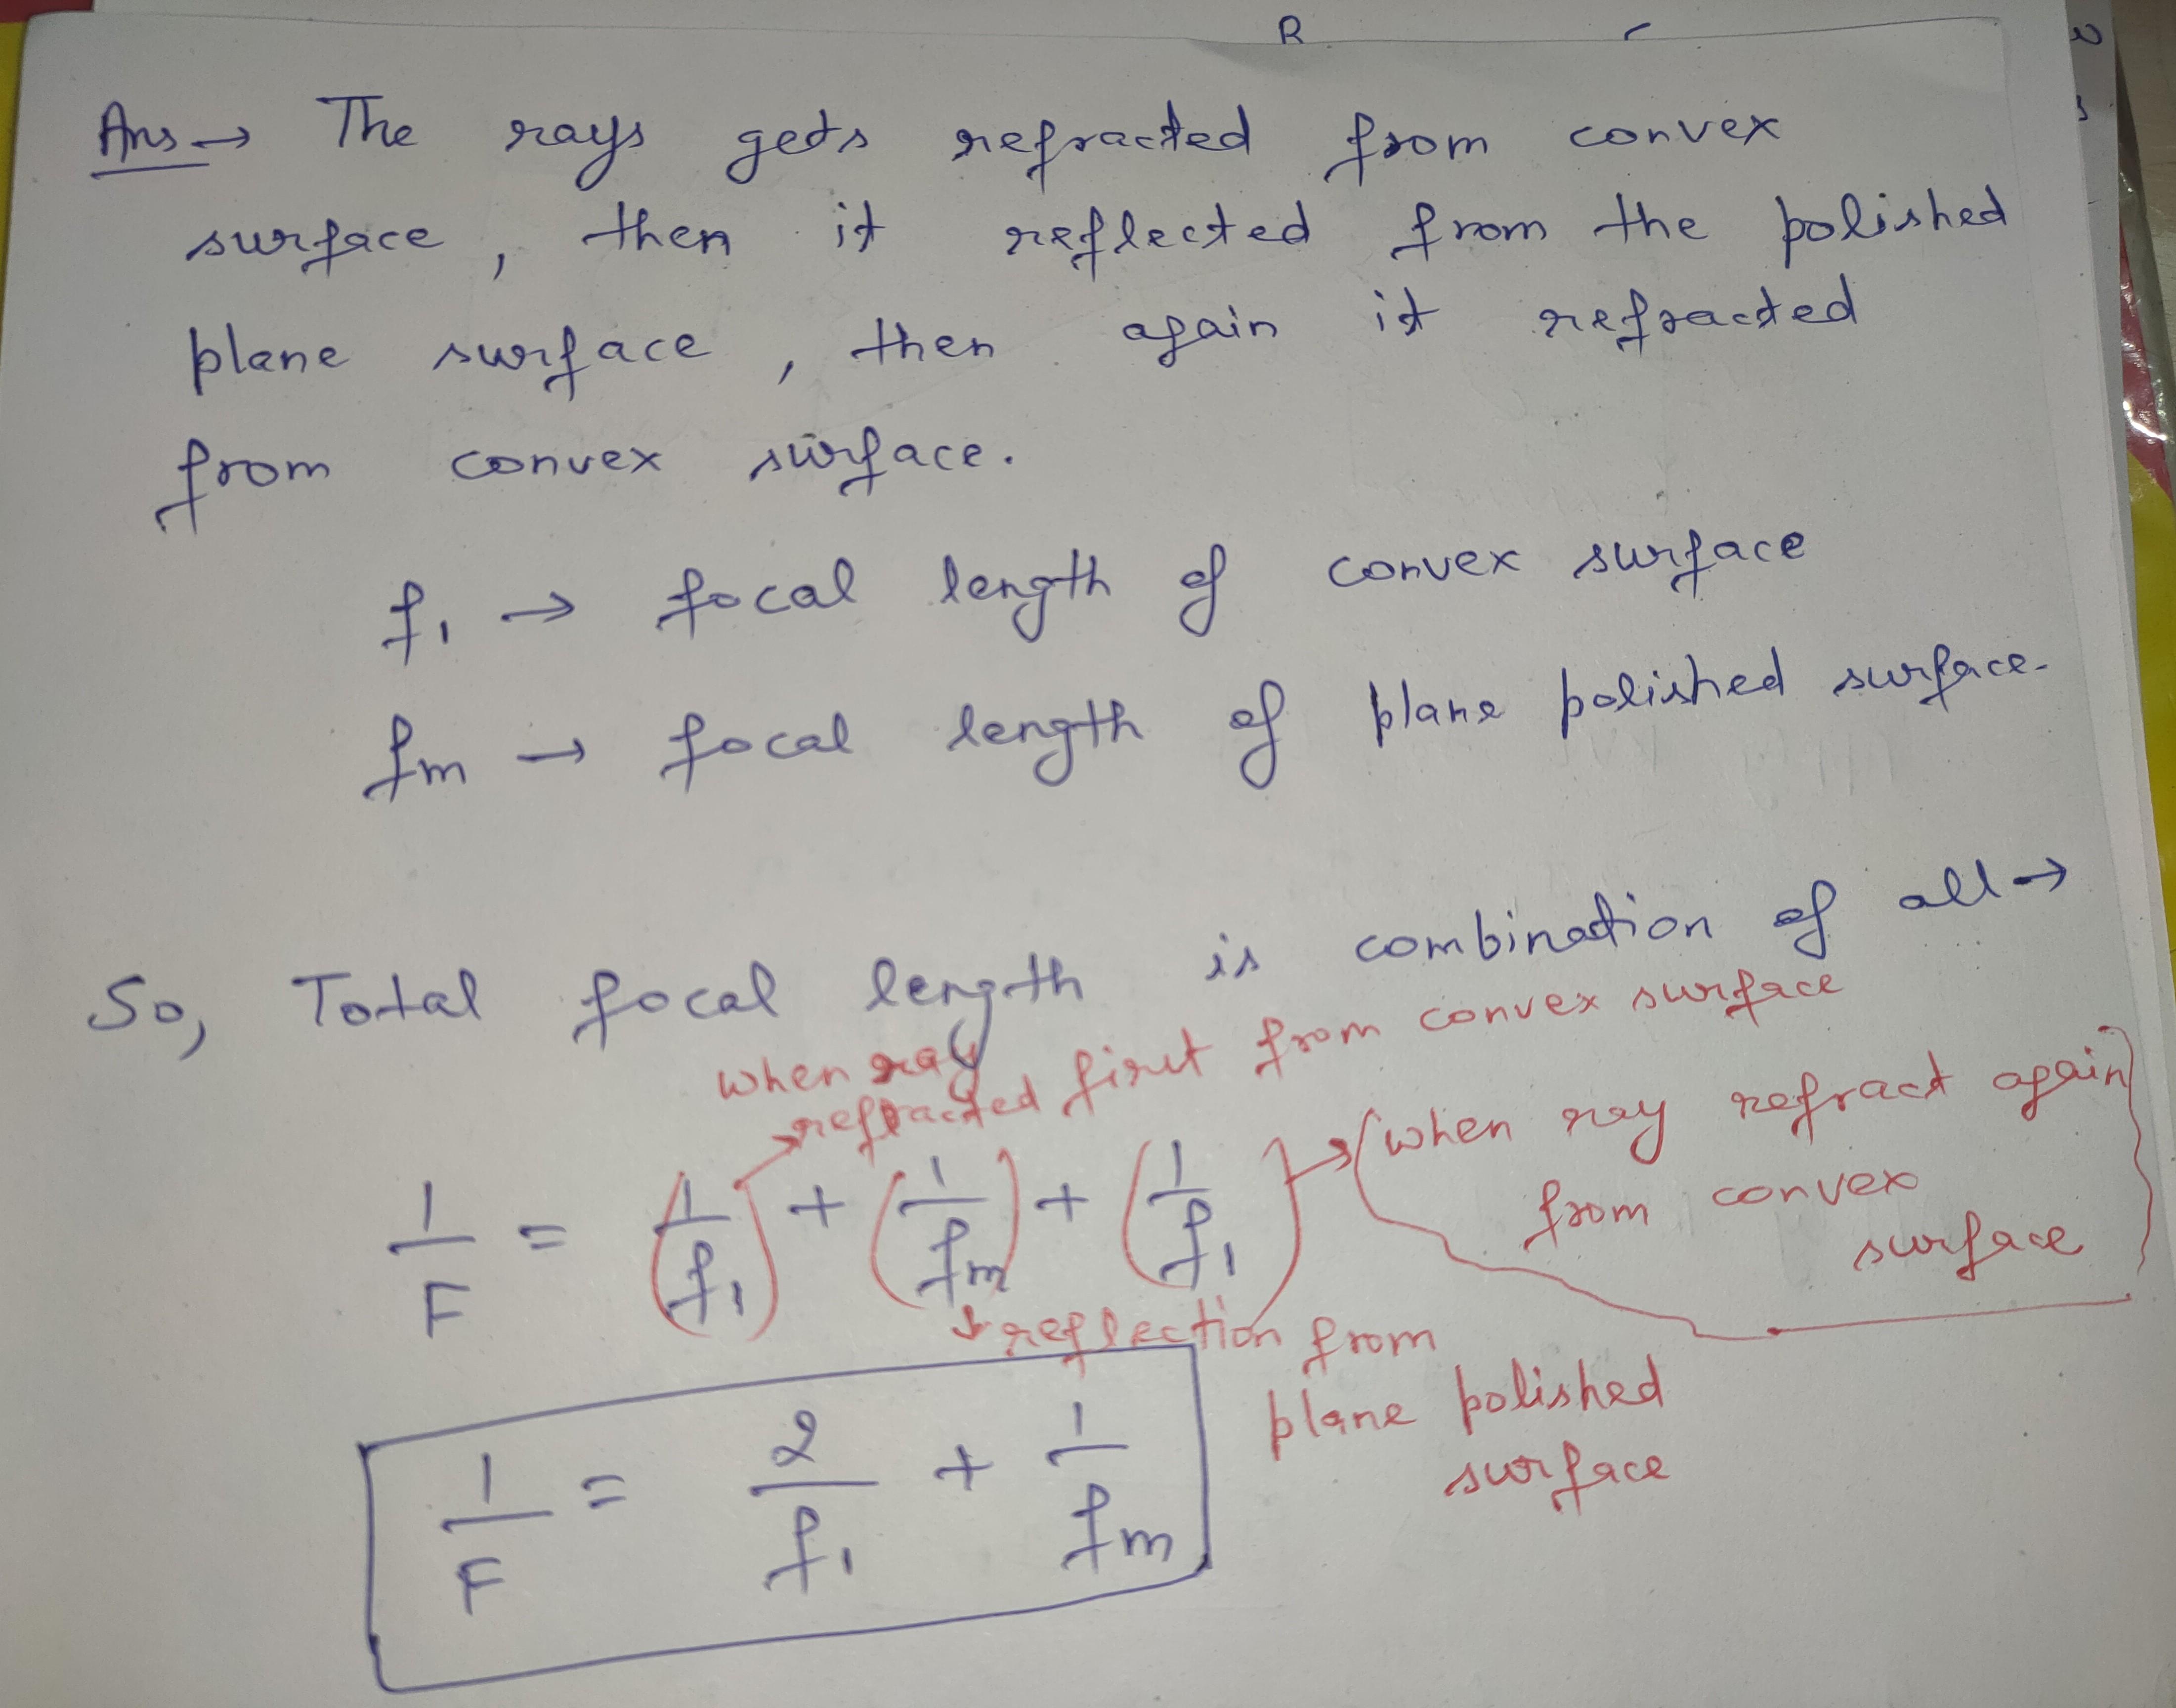 R
Ans → The rays gets refracted from convex
surface, then it reflected from the polished
plane surface, then again it refracted
from convex surface.
f₁ → focal length of convex surface
fm → focal length of plane polished surface.
So, Total focal length is combination of all →
when ray
refracted first from convex surface
(when ray refract again
from convex
surface
1/F = (1/f₁) + (1/fm) + (1/f₁)
↓ reflection from
plane polished
surface
1/F = 2/f₁ + 1/fm